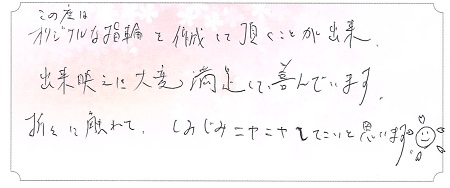 この度は
オリジナルな指輪を作成して頂くことが出来、
出来映えに大変満足して、喜んでいます。
折々に触れて、しみじみニヤニヤしていこいと思います